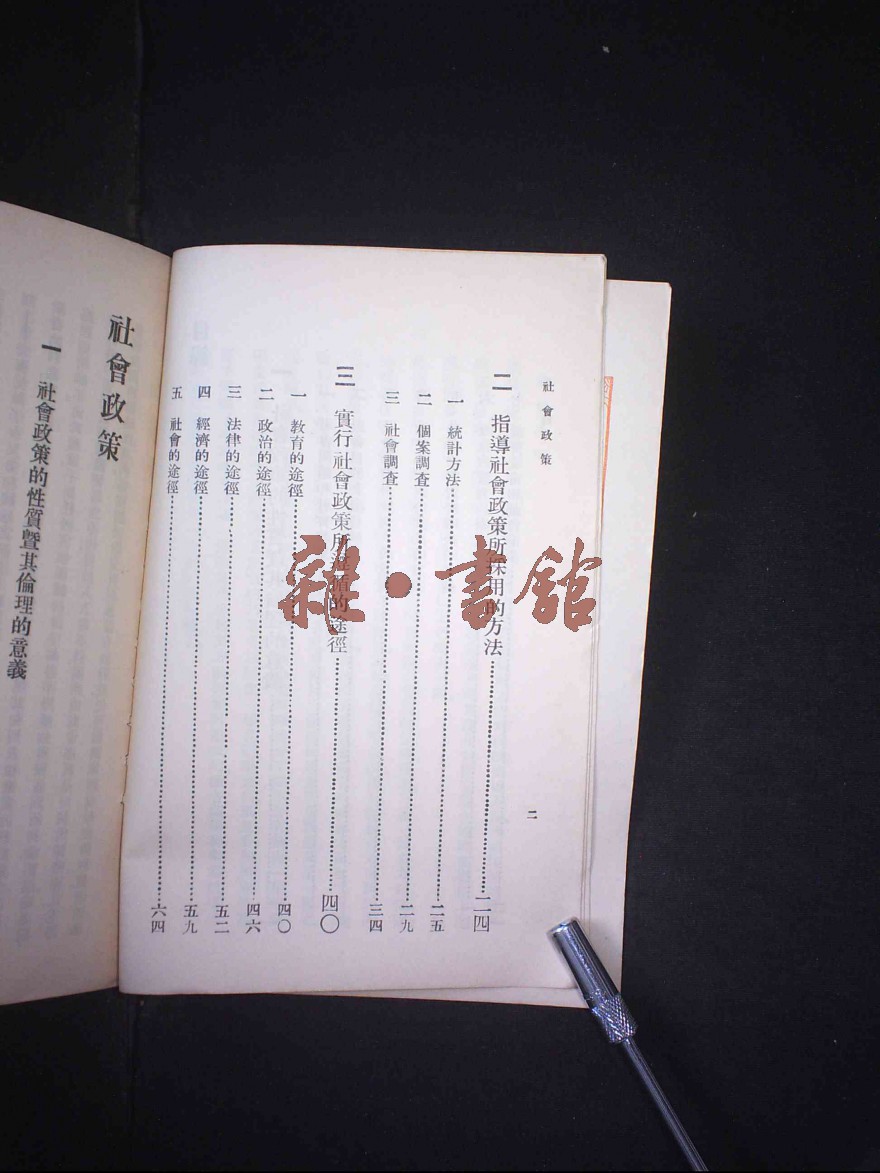 社會政策
二
二 指導社會政策所採用的方法……二四
一 統計方法……二五
二 個案調查……二九
三 社會調查……三四
三 實行社會政策所遵循的途徑……四〇
一 教育的途徑……四〇
二 政治的途徑……四六
三 法律的途徑……五二
四 經濟的途徑……五九
五 社會的途徑……六四
社會政策
一 社會政策的性質曁其倫理的意義
雜·書館